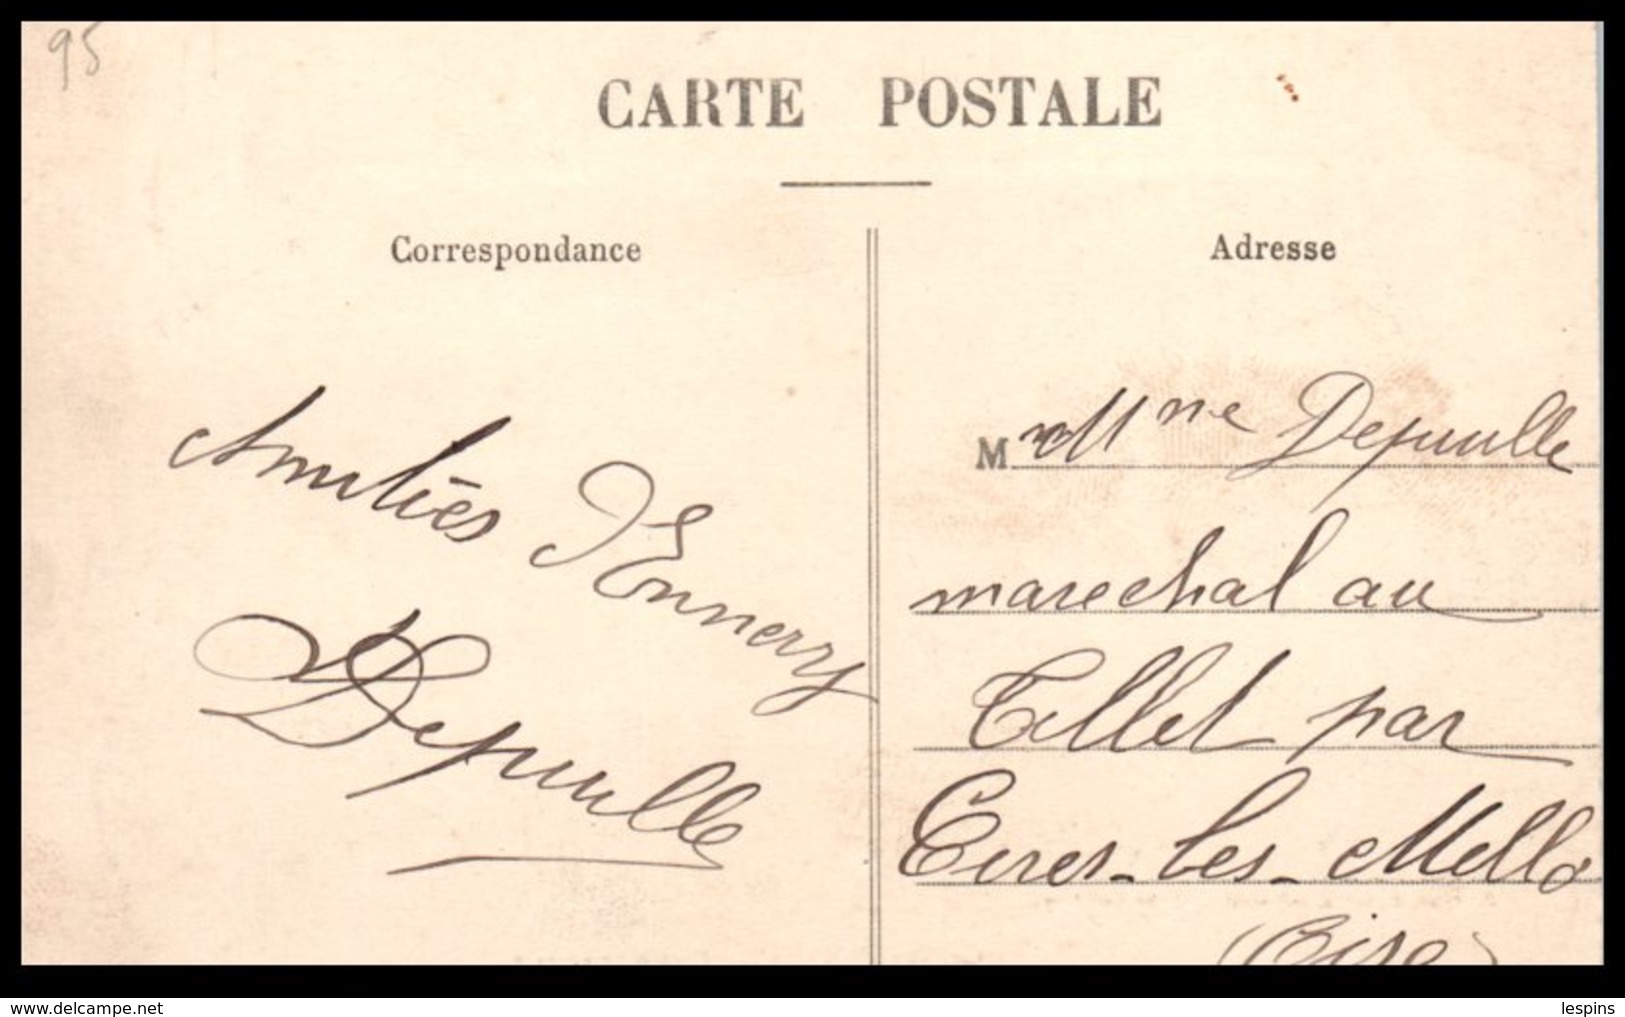 95
CARTE POSTALE
Correspondance
Adresse
Amitiés d'Ennery
Depuille
M Mme Depuille
marechal au
Tillet par
Cires-les-Mello
(Oise)
www.delcampe.net
lespins